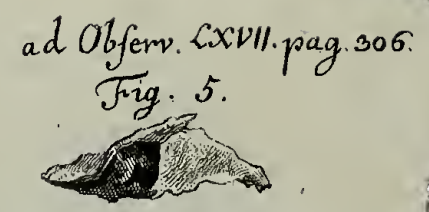 ad Observ. LXVII. pag. 306.
Fig. 5.